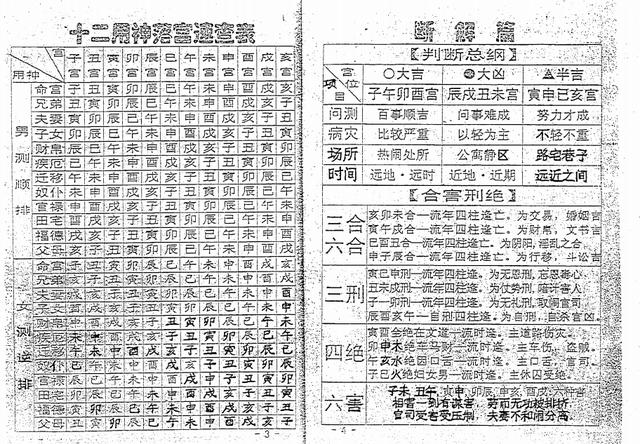 十二用神落宫速查表
宫
用神
子宫 丑宫 寅宫 卯宫 辰宫 巳宫 午宫 未宫 申宫 酉宫 戌宫 亥宫
男测顺排
命宫 子 丑 寅 卯 辰 巳 午 未 申 酉 戌 亥
兄弟 丑 寅 卯 辰 巳 午 未 申 酉 戌 亥 子
夫妻 寅 卯 辰 巳 午 未 申 酉 戌 亥 子 丑
子女 卯 辰 巳 午 未 申 酉 戌 亥 子 丑 寅
财帛 辰 巳 午 未 申 酉 戌 亥 子 丑 寅 卯
疾厄 巳 午 未 申 酉 戌 亥 子 丑 寅 卯 辰
迁移 午 未 申 酉 戌 亥 子 丑 寅 卯 辰 巳
奴仆 未 申 酉 戌 亥 子 丑 寅 卯 辰 巳 午
官禄 申 酉 戌 亥 子 丑 寅 卯 辰 巳 午 未
田宅 酉 戌 亥 子 丑 寅 卯 辰 巳 午 未 申
福德 戌 亥 子 丑 寅 卯 辰 巳 午 未 申 酉
父母 亥 子 丑 寅 卯 辰 巳 午 未 申 酉 戌
女测逆排
命宫 子 丑 寅 卯 辰 巳 午 未 申 酉 戌 亥
兄弟 亥 子 丑 寅 卯 辰 巳 午 未 申 酉 戌
夫妻 戌 亥 子 丑 寅 卯 辰 巳 午 未 申 酉
子女 酉 戌 亥 子 丑 寅 卯 辰 巳 午 未 申
财帛 申 酉 戌 亥 子 丑 寅 卯 辰 巳 午 未
疾厄 未 申 酉 戌 亥 子 丑 寅 卯 辰 巳 午
迁移 午 未 申 酉 戌 亥 子 丑 寅 卯 辰 巳
奴仆 巳 午 未 申 酉 戌 亥 子 丑 寅 卯 辰
官禄 辰 巳 午 未 申 酉 戌 亥 子 丑 寅 卯
田宅 卯 辰 巳 午 未 申 酉 戌 亥 子 丑 寅
福德 寅 卯 辰 巳 午 未 申 酉 戌 亥 子 丑
父母 丑 寅 卯 辰 巳 午 未 申 酉 戌 亥 子
-3-
断解篇
【判断总纲】
宫位
项目
○大吉 大凶 △半吉
子午卯酉宫 辰戌丑未宫 寅申巳亥宫
问测 百事顺吉 问事难成 努力才成
病灾 比较严重 以轻为主 不轻不重
场所 热闹处所 公寓静区 路宅巷子
时间 远地·远时 近地·近期 远近之间
【合害刑绝】
三合六合
亥卯未合一流年四柱逢亡。为交易,婚姻吉
寅午戌合一流年四柱逢亡。为财帛,文书吉
巳酉丑合一流年四柱逢亡。为阴阳,淫乱之合
申子辰合一流年四柱逢亡。为行移,斗讼吉
三刑
寅巳申刑一流年四柱逢。为无恩刑,忘恩毒心
丑未戌刑一流年四柱逢。为仗势刑,暗汗害人
子一卯刑一流年四柱逢。为无礼刑,取闹官司
辰酉亥午一自刑四柱逢。为自刑,自杀宫凶
四绝
寅酉全绝在文道一流时逢。主道路伤灾。
卯申木绝车马财一流时逢。主车伤,盗贼。
午亥水绝因口舌一流时逢。主口舌,官司。
子巳火绝妇女男一流时逢。主休囚受绝。
六害
子未 丑午 寅申 卯辰 申亥 酉戌 六种害
相害一到有谋害,劳而无功被排挤
官司受害受压制,夫妻不和闹分高
-4-